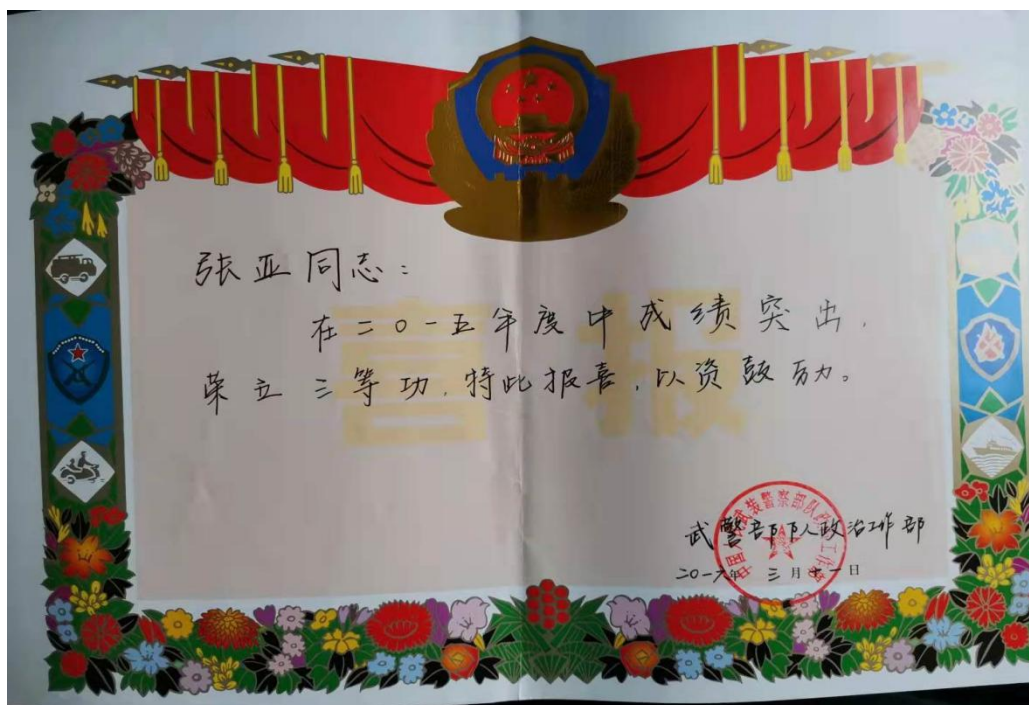 张亚同志：
在二〇一五年度中成绩突出，
荣立三等功，特此报喜，以资鼓励。
喜报
武警部队政治工作部
二〇一六年三月十一日